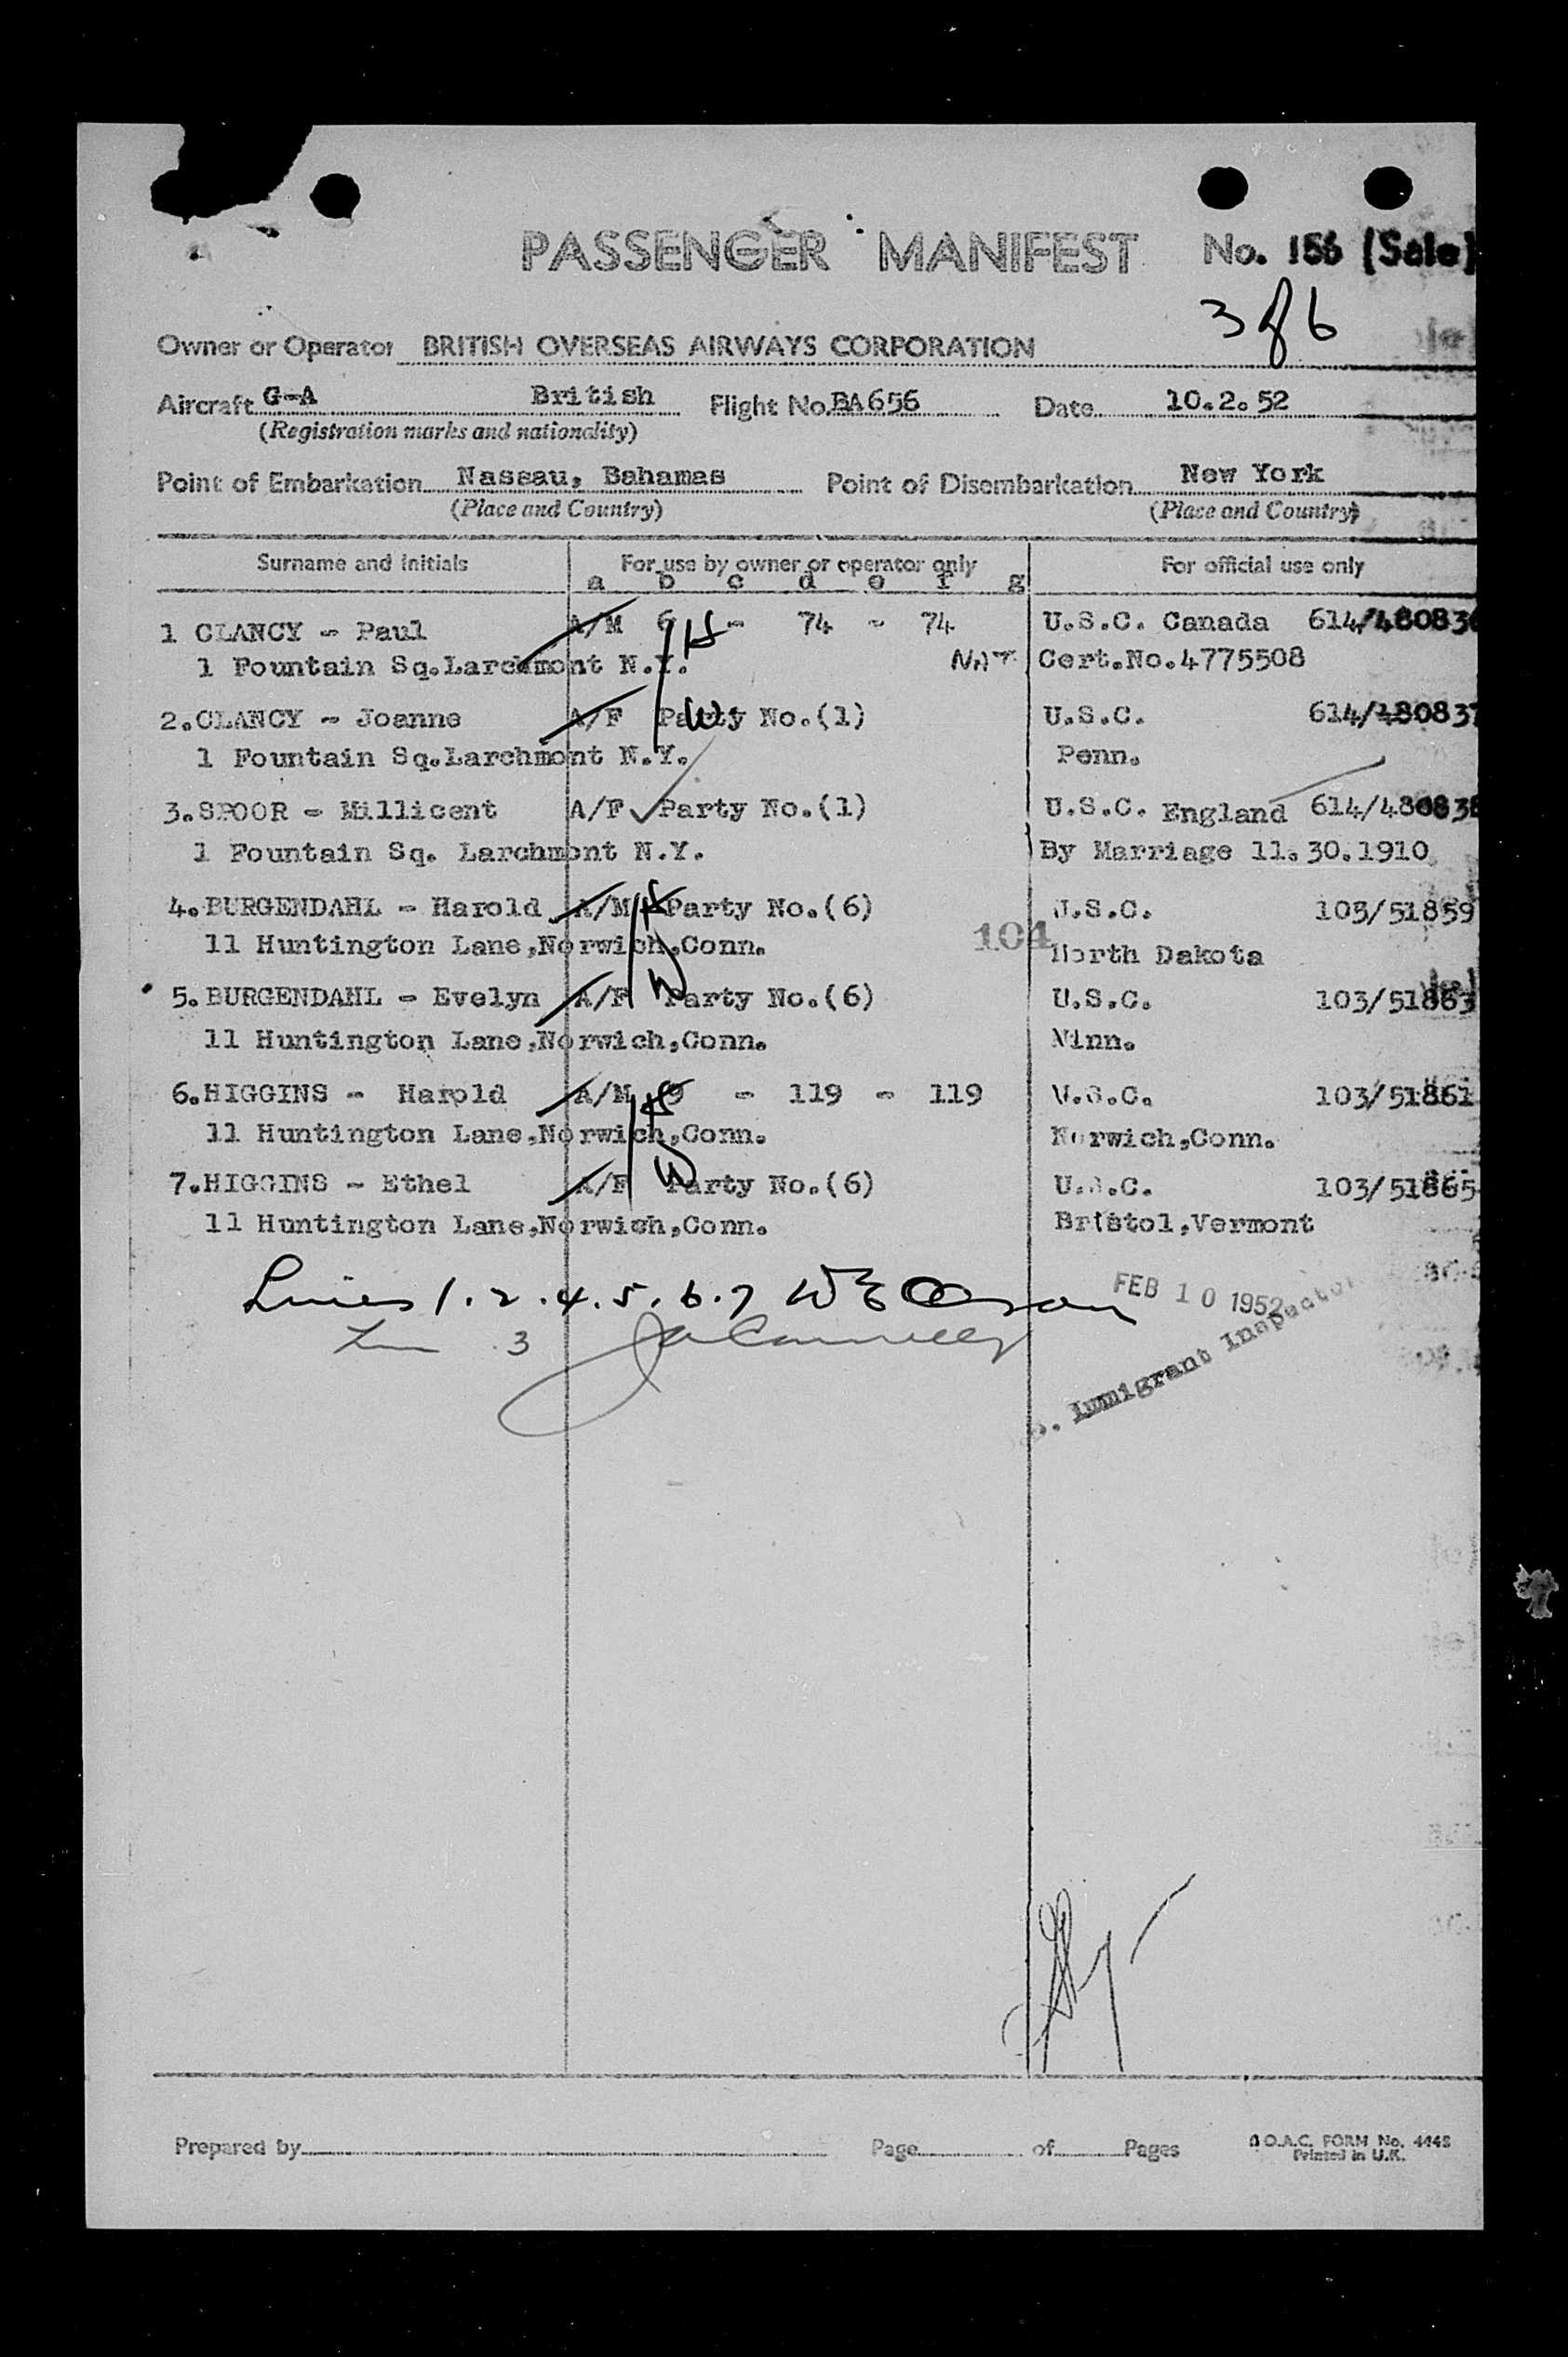 PASSENGER MANIFEST No. 156 (Sale)
3 of 6
Owner or Operator BRITISH OVERSEAS AIRWAYS CORPORATION
Aircraft G-A British Flight No. BA656 Date 10.2.52
(Registration marks and nationality)
Point of Embarkation Nassau, Bahamas Point of Disembarkation New York
(Place and Country) (Place and Country)
Surname and initials For use by owner or operator only For official use only
a b c d e f g
1 CLANCY - Paul A/M 6 - 74 - 74 U.S.C. Canada 614/480836
H
1 Fountain Sq.Larchmont N.Y. NAT Cert.No.4775508
2.CLANCY - Joanne A/F Party No.(1) U.S.C. 614/480837
W
1 Fountain Sq.Larchmont N.Y. Penn.
3.SPOOR - Millicent A/F Party No.(1) U.S.C. England 614/480838
1 Fountain Sq. Larchmont N.Y. By Marriage 11.30.1910
4.BURGENDAHL - Harold A/M Party No.(6) U.S.C. 103/51859
H
11 Huntington Lane,Norwich,Conn. 104 North Dakota
5.BURGENDAHL - Evelyn A/F Party No.(6) U.S.C. 103/51863
W
11 Huntington Lane,Norwich,Conn. Minn.
6.HIGGINS - Harold A/M 9 - 119 - 119 U.S.C. 103/51861
H
11 Huntington Lane,Norwich,Conn. Norwich,Conn.
7.HIGGINS - Ethel A/F Party No.(6) U.S.C. 103/51865
W
11 Huntington Lane,Norwich,Conn. Bristol,Vermont
Lines 1.2.4.5.6.7 FEB 10 1952
Line 3
Immigrant Inspector
Prepared by Page of Pages B.O.A.C. FORM No. 4448
Printed in U.K.